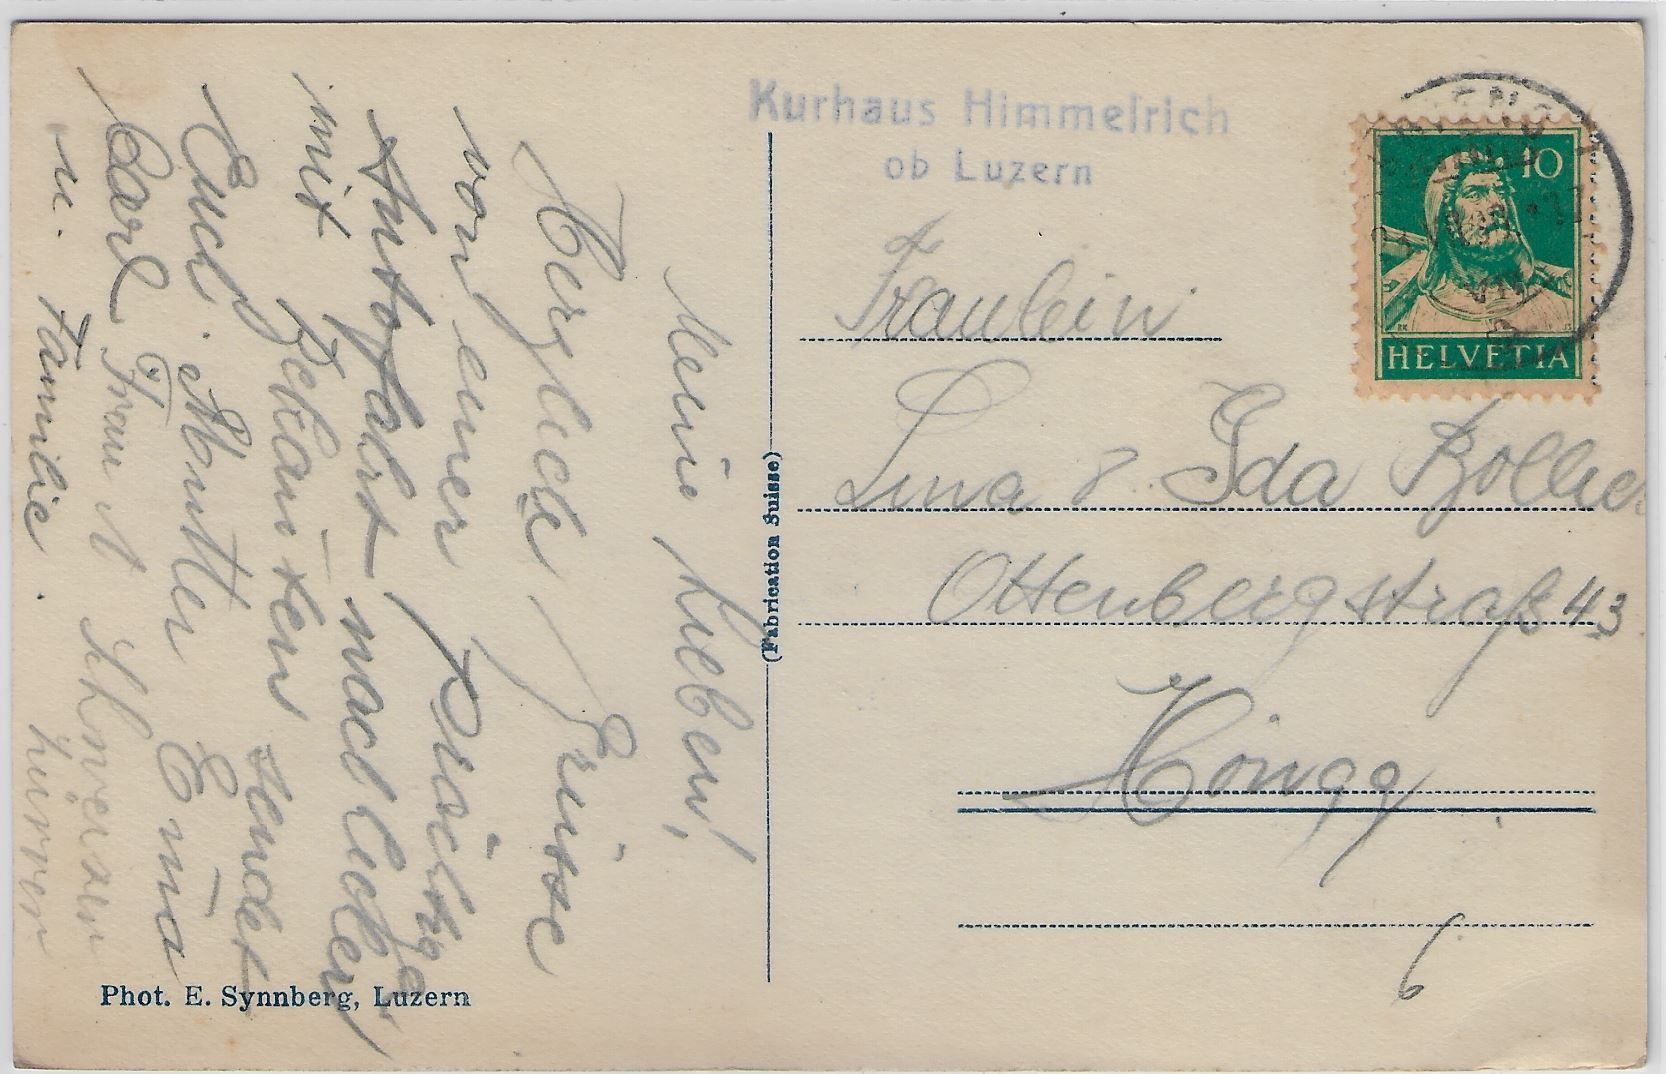 Kurhaus Himmelrich
ob Luzern
10
HELVETIA
Fräulein
Lina & Ida Bollier
Ottenbergstraß 43
Höngg
6
(Fabrication Suisse)
Phot. E. Synnberg, Luzern
Meine Lieben!
Herzliche Grüsse
von einer prächtige
Autofahrt nach Luzern
mit Bekannten sendet
Euch Mutter Emma
Carl Frau
u. Familie.